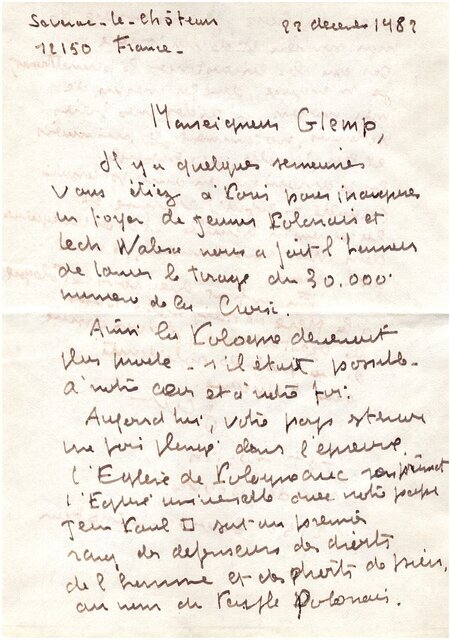 Séverac-le-Château 22 décembre 1982
12150 France.
Monseigneur Glemp,
Il y a quelques semaines
vous étiez à Paris pour inaugurer
un foyer de jeunes Polonais et
Lech Walesa nous a fait l'honneur
de lancer le tirage du 30.000
numéro de la Croix.
Ainsi la Pologne devenait
plus proche - s'il était possible -
à notre cœur et à notre foi.
Aujourd'hui, votre pays est encore
une fois plongé dans l'épreuve.
L'Eglise de Pologne avec
l'Eglise universelle avec notre pape
Jean Paul II sont au premier
rang des défenseurs des droits
de l'homme et des droits de Dieu,
au nom du Peuple Polonais.